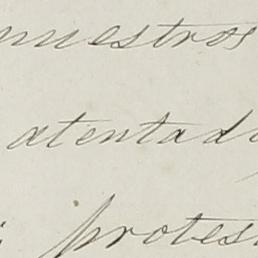 nuestros
atentad
protes